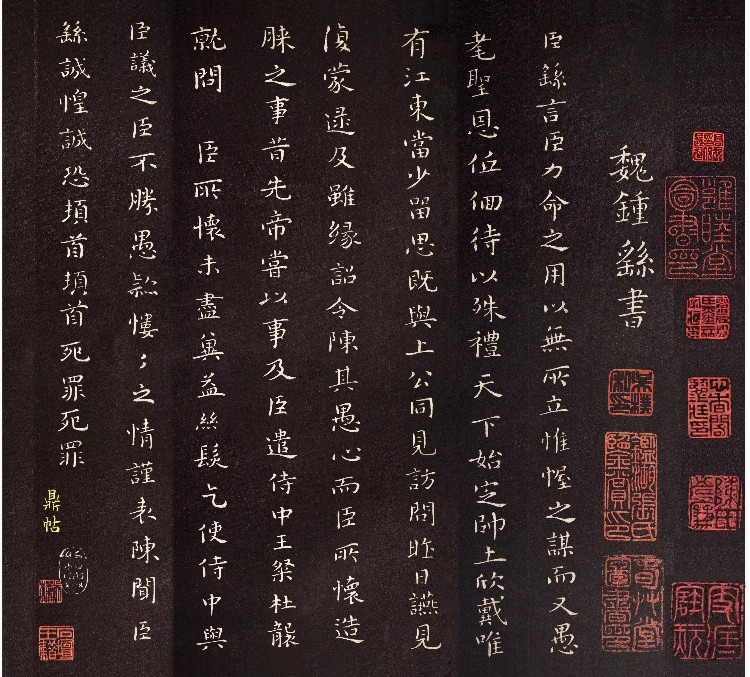 魏鍾繇書
臣繇言臣力命之用以無所立惟幄之謀而又愚
耄聖恩低佪待以殊禮天下始定帥土欣戴唯
有江東當少留思既與上公同見訪問昨日讌見
復蒙逮及雖緣詔令陳其愚心而臣所懷造
膝之事昔先帝嘗以事及臣遣侍中王粲杜襲
就問 臣所懷未盡冀益絲髮乞使侍中與
臣議之臣不勝愚款慺〻之情謹表陳聞臣
繇誠惶誠恐頓首頓首死罪死罪
鼎帖